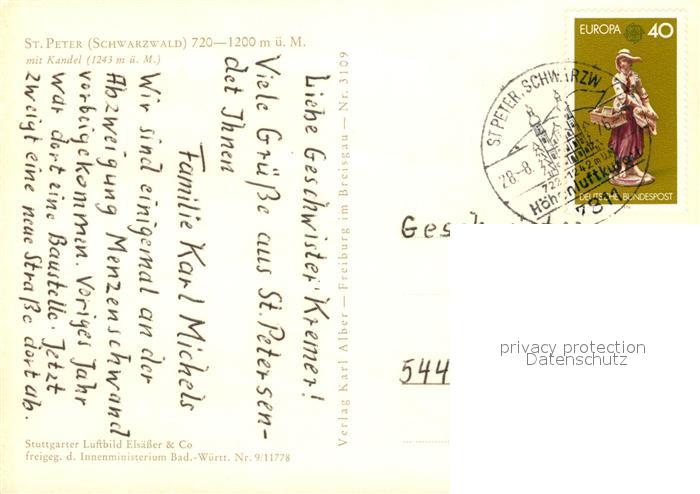 ST. PETER (SCHWARZWALD) 720—1200 m ü. M.
mit Kandel (1243 m ü. M.)
Liebe Geschwister Kremer!
Viele Grüße aus St. Peter sen-
det Ihnen
Familie Karl Michels
Wir sind einigemal an der
Abzweigung Menzenschwand
vorbeigekommen. Voriges Jahr
war dort eine Baustelle. Jetzt
zweigt eine neue Straße dort ab.
Stuttgarter Luftbild Elsäßer & Co
freigeg. d. Innenministerium Bad.-Württ. Nr. 9/11778
Verlag Karl Alber — Freiburg im Breisgau — Nr. 3109
EUROPA 40
DEUTSCHE BUNDESPOST
ST. PETER, SCHWARZW
28.-8. 76
722-1242 m ü
Höhenluftkurort
7811
544
privacy protection
Datenschutz